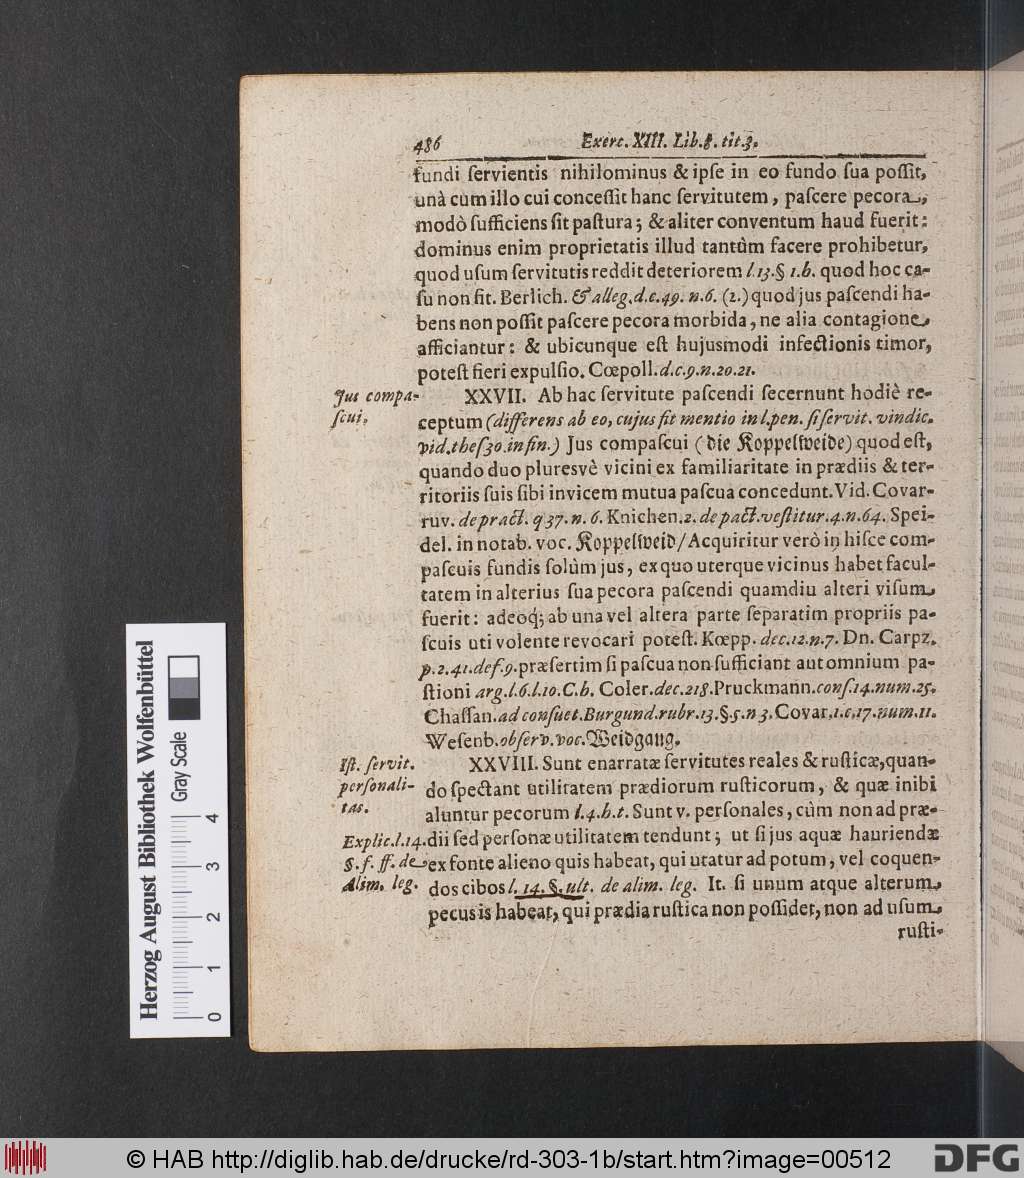 486 Exerc. XIII. Lib. 8. tit. 3.
fundi ſervientis nihilominus & ipſe in eo fundo ſua poſſit,
unà cum illo cui conceſſit hanc ſervitutem, paſcere pecora,
modò ſufficiens ſit paſtura; & aliter conventum haud fuerit:
dominus enim proprietatis illud tantùm facere prohibetur,
quod uſum ſervitutis reddit deteriorem l. 13. § 1. h. quod hoc ca-
ſu non fit. Berlich. & alleg. d. c. 49. n. 6. (2.) quod jus paſcendi ha-
bens non poſſit paſcere pecora morbida, ne alia contagione
afficiantur: & ubicunque eſt hujusmodi infectionis timor,
poteſt fieri expulſio. Cœpoll. d. c. 9. n. 20. 21.
Jus compa-
ſcui.
XXVII. Ab hac ſervitute paſcendi ſecernunt hodiè re-
ceptum (differens ab eo, cujus fit mentio in l. pen. ſi ſervit. vindic.
vid. theſ 30. in fin.) Jus compaſcui (die Koppelweide) quod eſt,
quando duo pluresvè vicini ex familiaritate in prædiis & ter-
ritoriis ſuis ſibi invicem mutua paſcua concedunt. Vid. Covar-
ruv. de pract. q 37. n. 6. Knichen. 2. de pact. veſtitur. 4. n. 64. Spei-
del. in notab. voc. Koppelweid/ Acquiritur verò in hiſce com-
paſcuis fundis ſolùm jus, ex quo uterque vicinus habet facul-
tatem in alterius ſua pecora paſcendi quamdiu alteri viſum
fuerit: adeoq́; ab una vel altera parte ſeparatim propriis pa-
ſcuis uti volente revocari poteſt. Kœpp. dec. 12. n. 7. Dn. Carpz.
p. 2. 41. def. 9. præſertim ſi paſcua non ſufficiant aut omnium pa-
ſtioni arg. l. 6. l. 10. C. h. Coler. dec. 218. Pruckmann. conſ. 14. num. 25.
Chaſſan. ad conſuet. Burgund. rubr. 13. §. 5. n 3. Covar. 1. c. 17. num. 11.
Weſenb. obſerv. voc. Weidgang.
Iſt. ſervit.
perſonali-
tas.
XXVIII. Sunt enarratæ ſervitutes reales & ruſticæ, quan-
do ſpectant utilitatem prædiorum ruſticorum, & quæ inibi
aluntur pecorum l. 4. h. t. Sunt v. perſonales, cùm non ad præ-
Explic. l. 14.
§. f. ff. de
Alim. leg.
dii ſed perſonæ utilitatem tendunt; ut ſi jus aquæ hauriendæ
ex fonte alieno quis habeat, qui utatur ad potum, vel coquen-
dos cibos l. 14. §. ult. de alim. leg. It. ſi unum atque alterum
pecus is habeat, qui prædia ruſtica non poſſidet, non ad uſum
ruſti-
Herzog August Bibliothek Wolfenbüttel
Gray Scale
0 1 2 3 4
© HAB http://diglib.hab.de/drucke/rd-303-1b/start.htm?image=00512
DFG